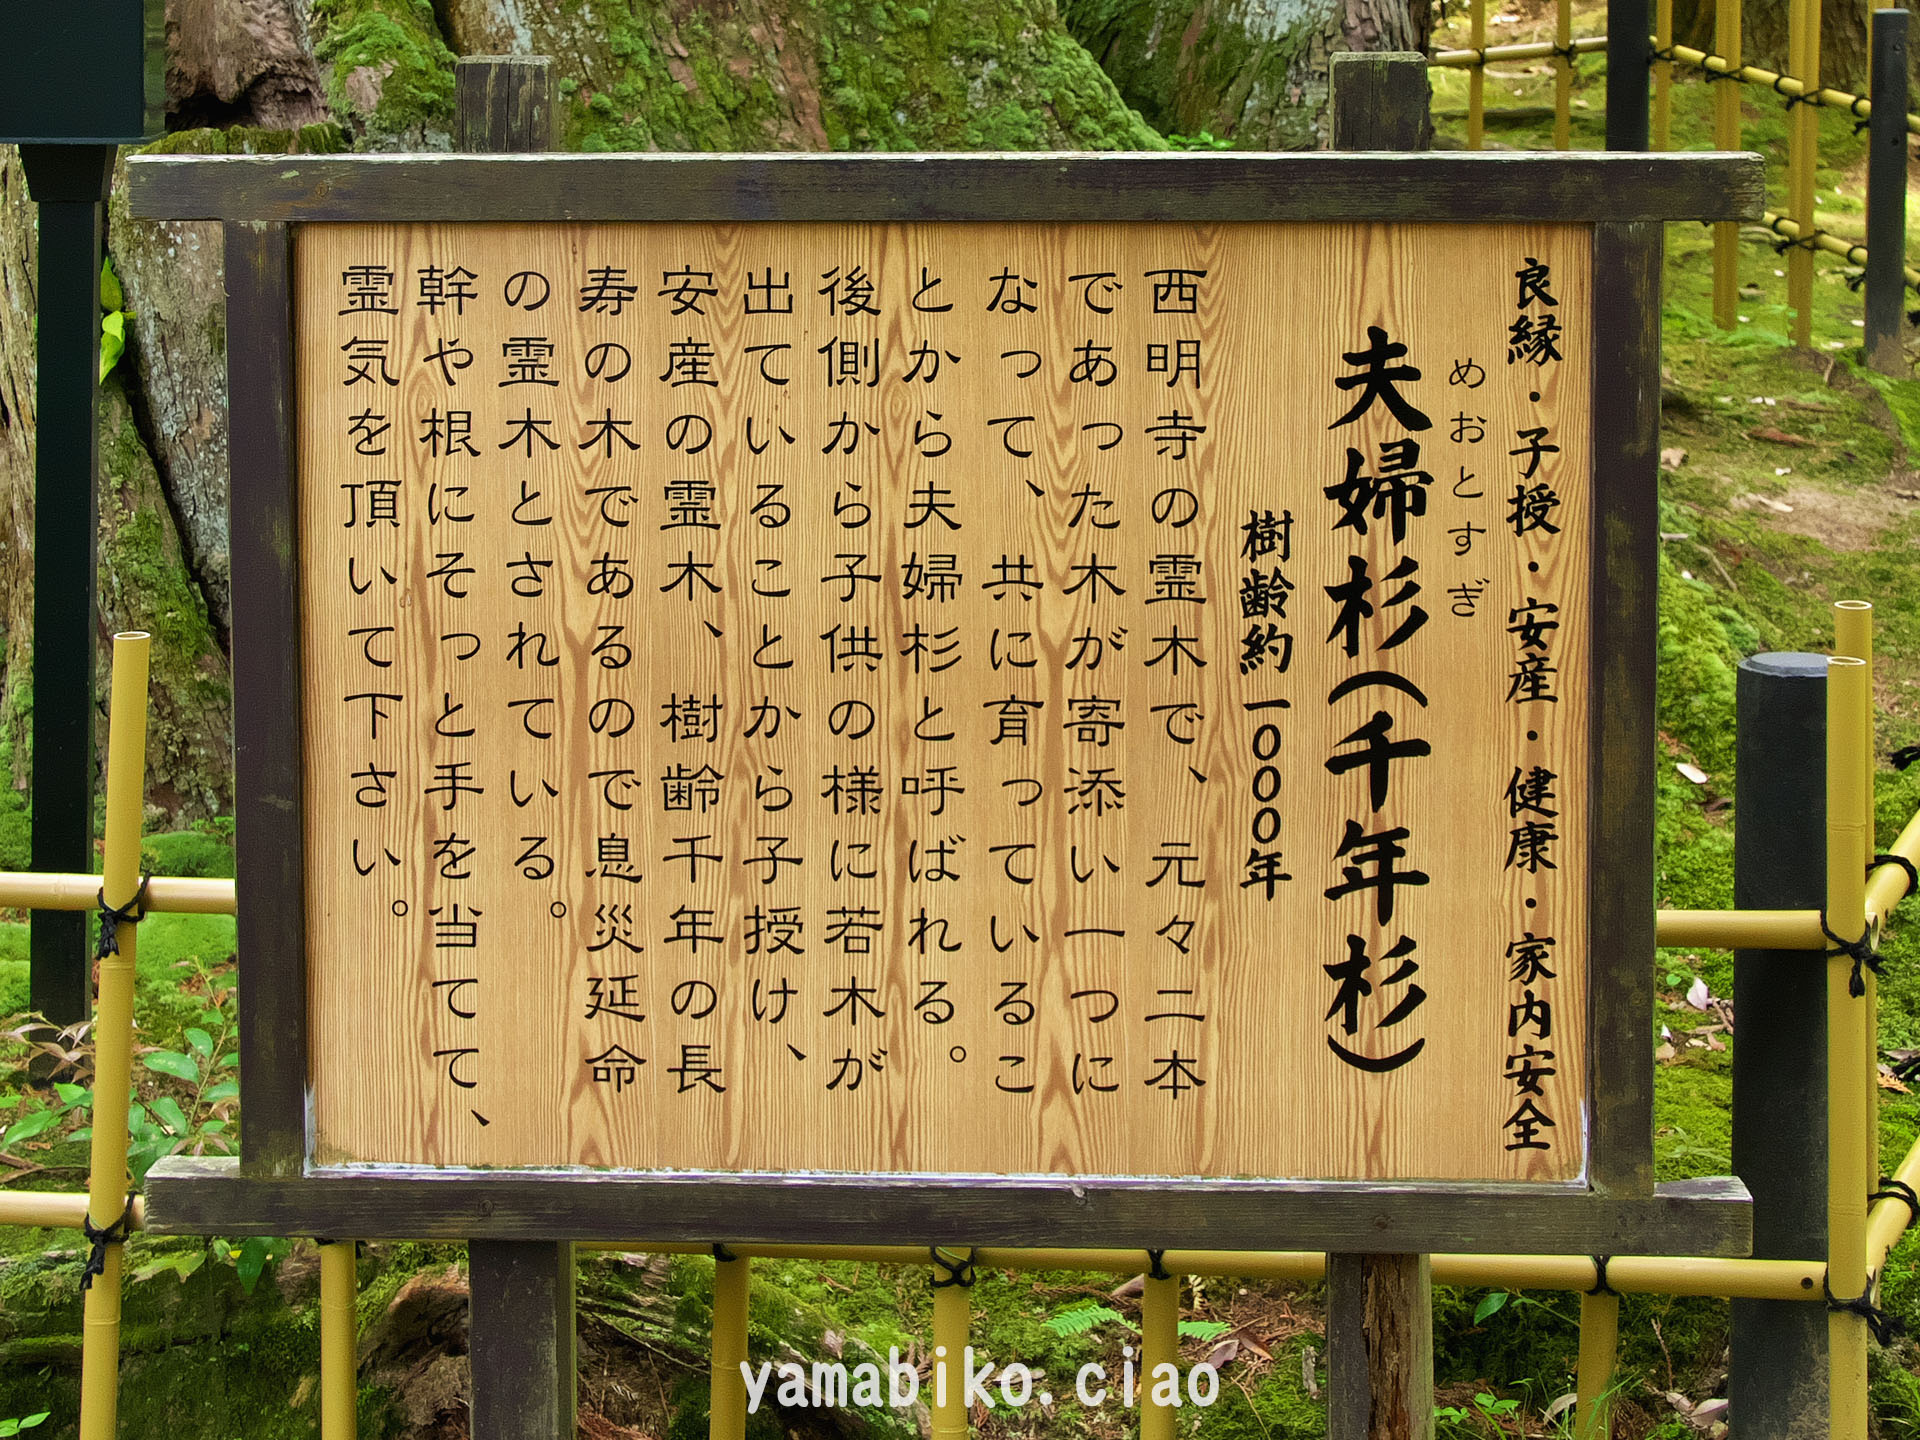 良縁・子授・安産・健康・家内安全
めおとすぎ
夫婦杉(千年杉)
樹齢約一000年
西明寺の霊木で、元々二本
であった木が寄添い一つに
なって、共に育っているこ
とから夫婦杉と呼ばれる。
後側から子供の様に若木が
出ていることから子授け、
安産の霊木、樹齢千年の長
寿の木であるので息災延命
の霊木とされている。
幹や根にそっと手を当てて、
霊気を頂いて下さい。
yamabiko.ciao